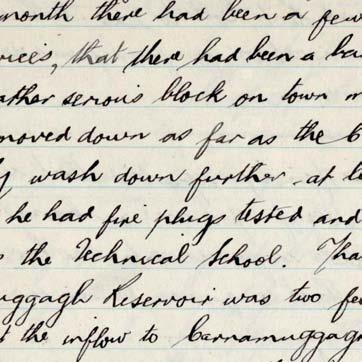 month there had been a few
vices, that there had been a
rather serious block on town
moved down as far as the
wash down further at
he had fire plugs tested and
the Technical School. Tha
uggagh Reservoir was two fe
the inflow to Carramuggag